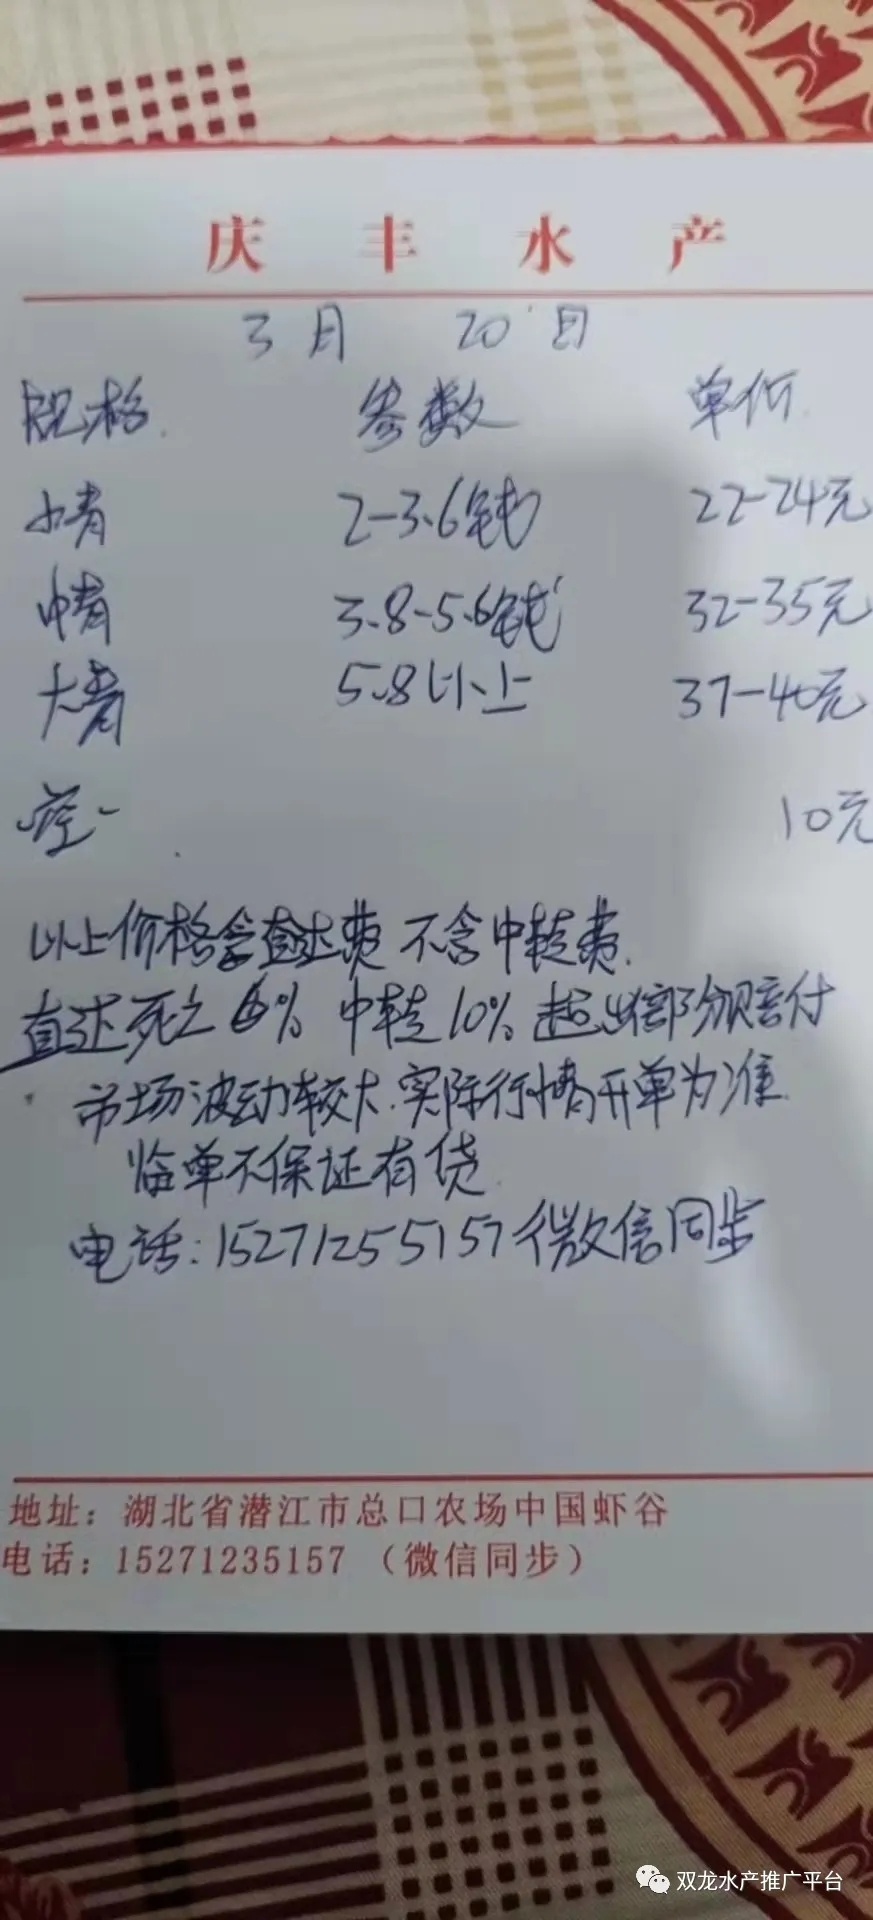 庆丰水产
3月 20日
规格 参数 单价
小青 2-3.6钱 22-24元
中青 3.8-5.6钱 32-35元
大青 5.8以上 37-40元
10元
以上价格含直达费 不含中转费.
直达死亡6% 中转10% 超出部份赔付
市场波动较大.实际行情开单为准.
临单不保证有货.
电话:15271255157微信同步
地址：湖北省潜江市总口农场中国虾谷
电话：15271235157（微信同步）
双龙水产推广平台